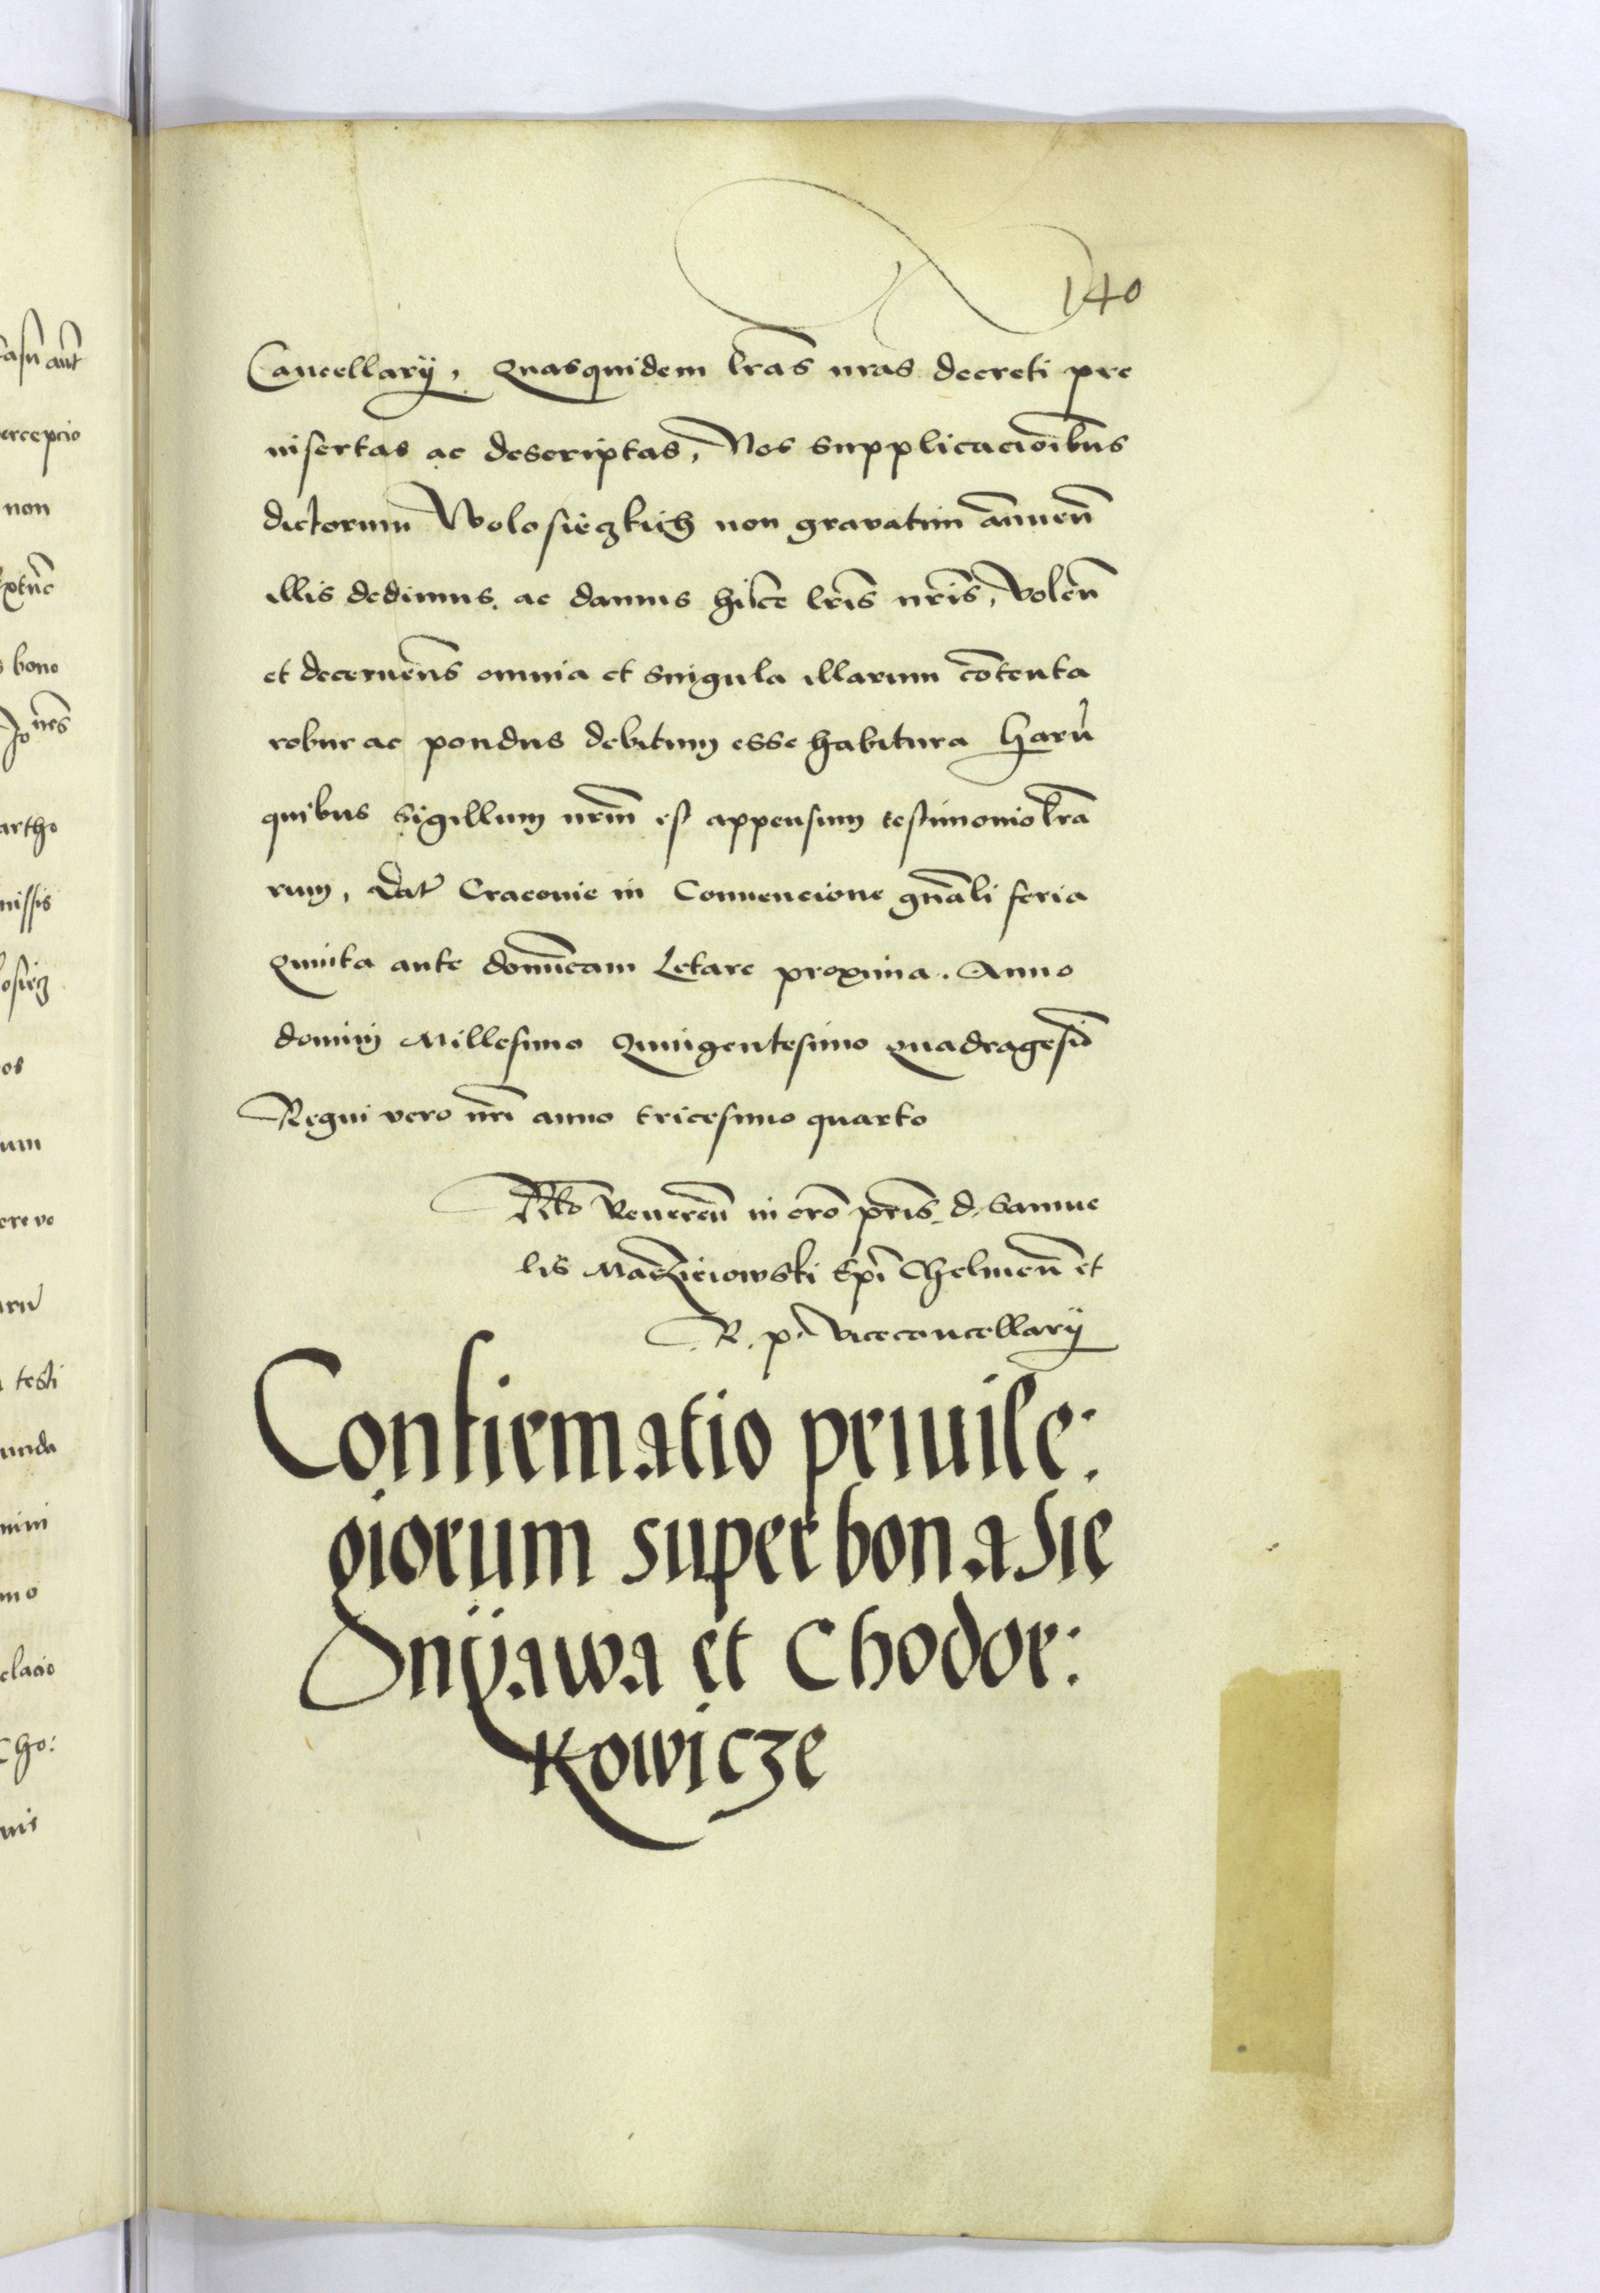 140
Cancellarÿ, Quasquidem lr̄as nr̄as decreti pre
insertas ac descriptas, Nos supplicacioībus
dictorum Wolosieczkich non gravatim annuen̄
illis dedimus, ac damus hisce lr̄is nr̄is, Volen̄
et decernen̄s omnia et singula illarum cōtenta
robur ac pondus debitum esse habitura Harū
quibus Sigillum nr̄m est appensum testimonio lr̄a
rum, Dat̄ Cracovie in Convencione gn̄ali feria
Quinta ante domīcam Letare proxima. Anno
domini Millesimo Quingentesimo Quadragesīo
Regni vero nr̄i anno tricesimo quarto
Rl̄to Reveren̄ in cr̄o pr̄is, d. Samue
lis Maczieiowski Ep̄i Chelmen̄ et
R. p. Vicecancellarÿ
Confirmatio privile:
giorum super bona Sie
Snÿawa et Chodor:
kowicze
casū aut̄
percepcio
non
Extūc
bono
Jo n̄es
artho
missis
losiecz
os
um
ere vo
arū
testi
unda
mini
mo
elacio
Cho:
nis